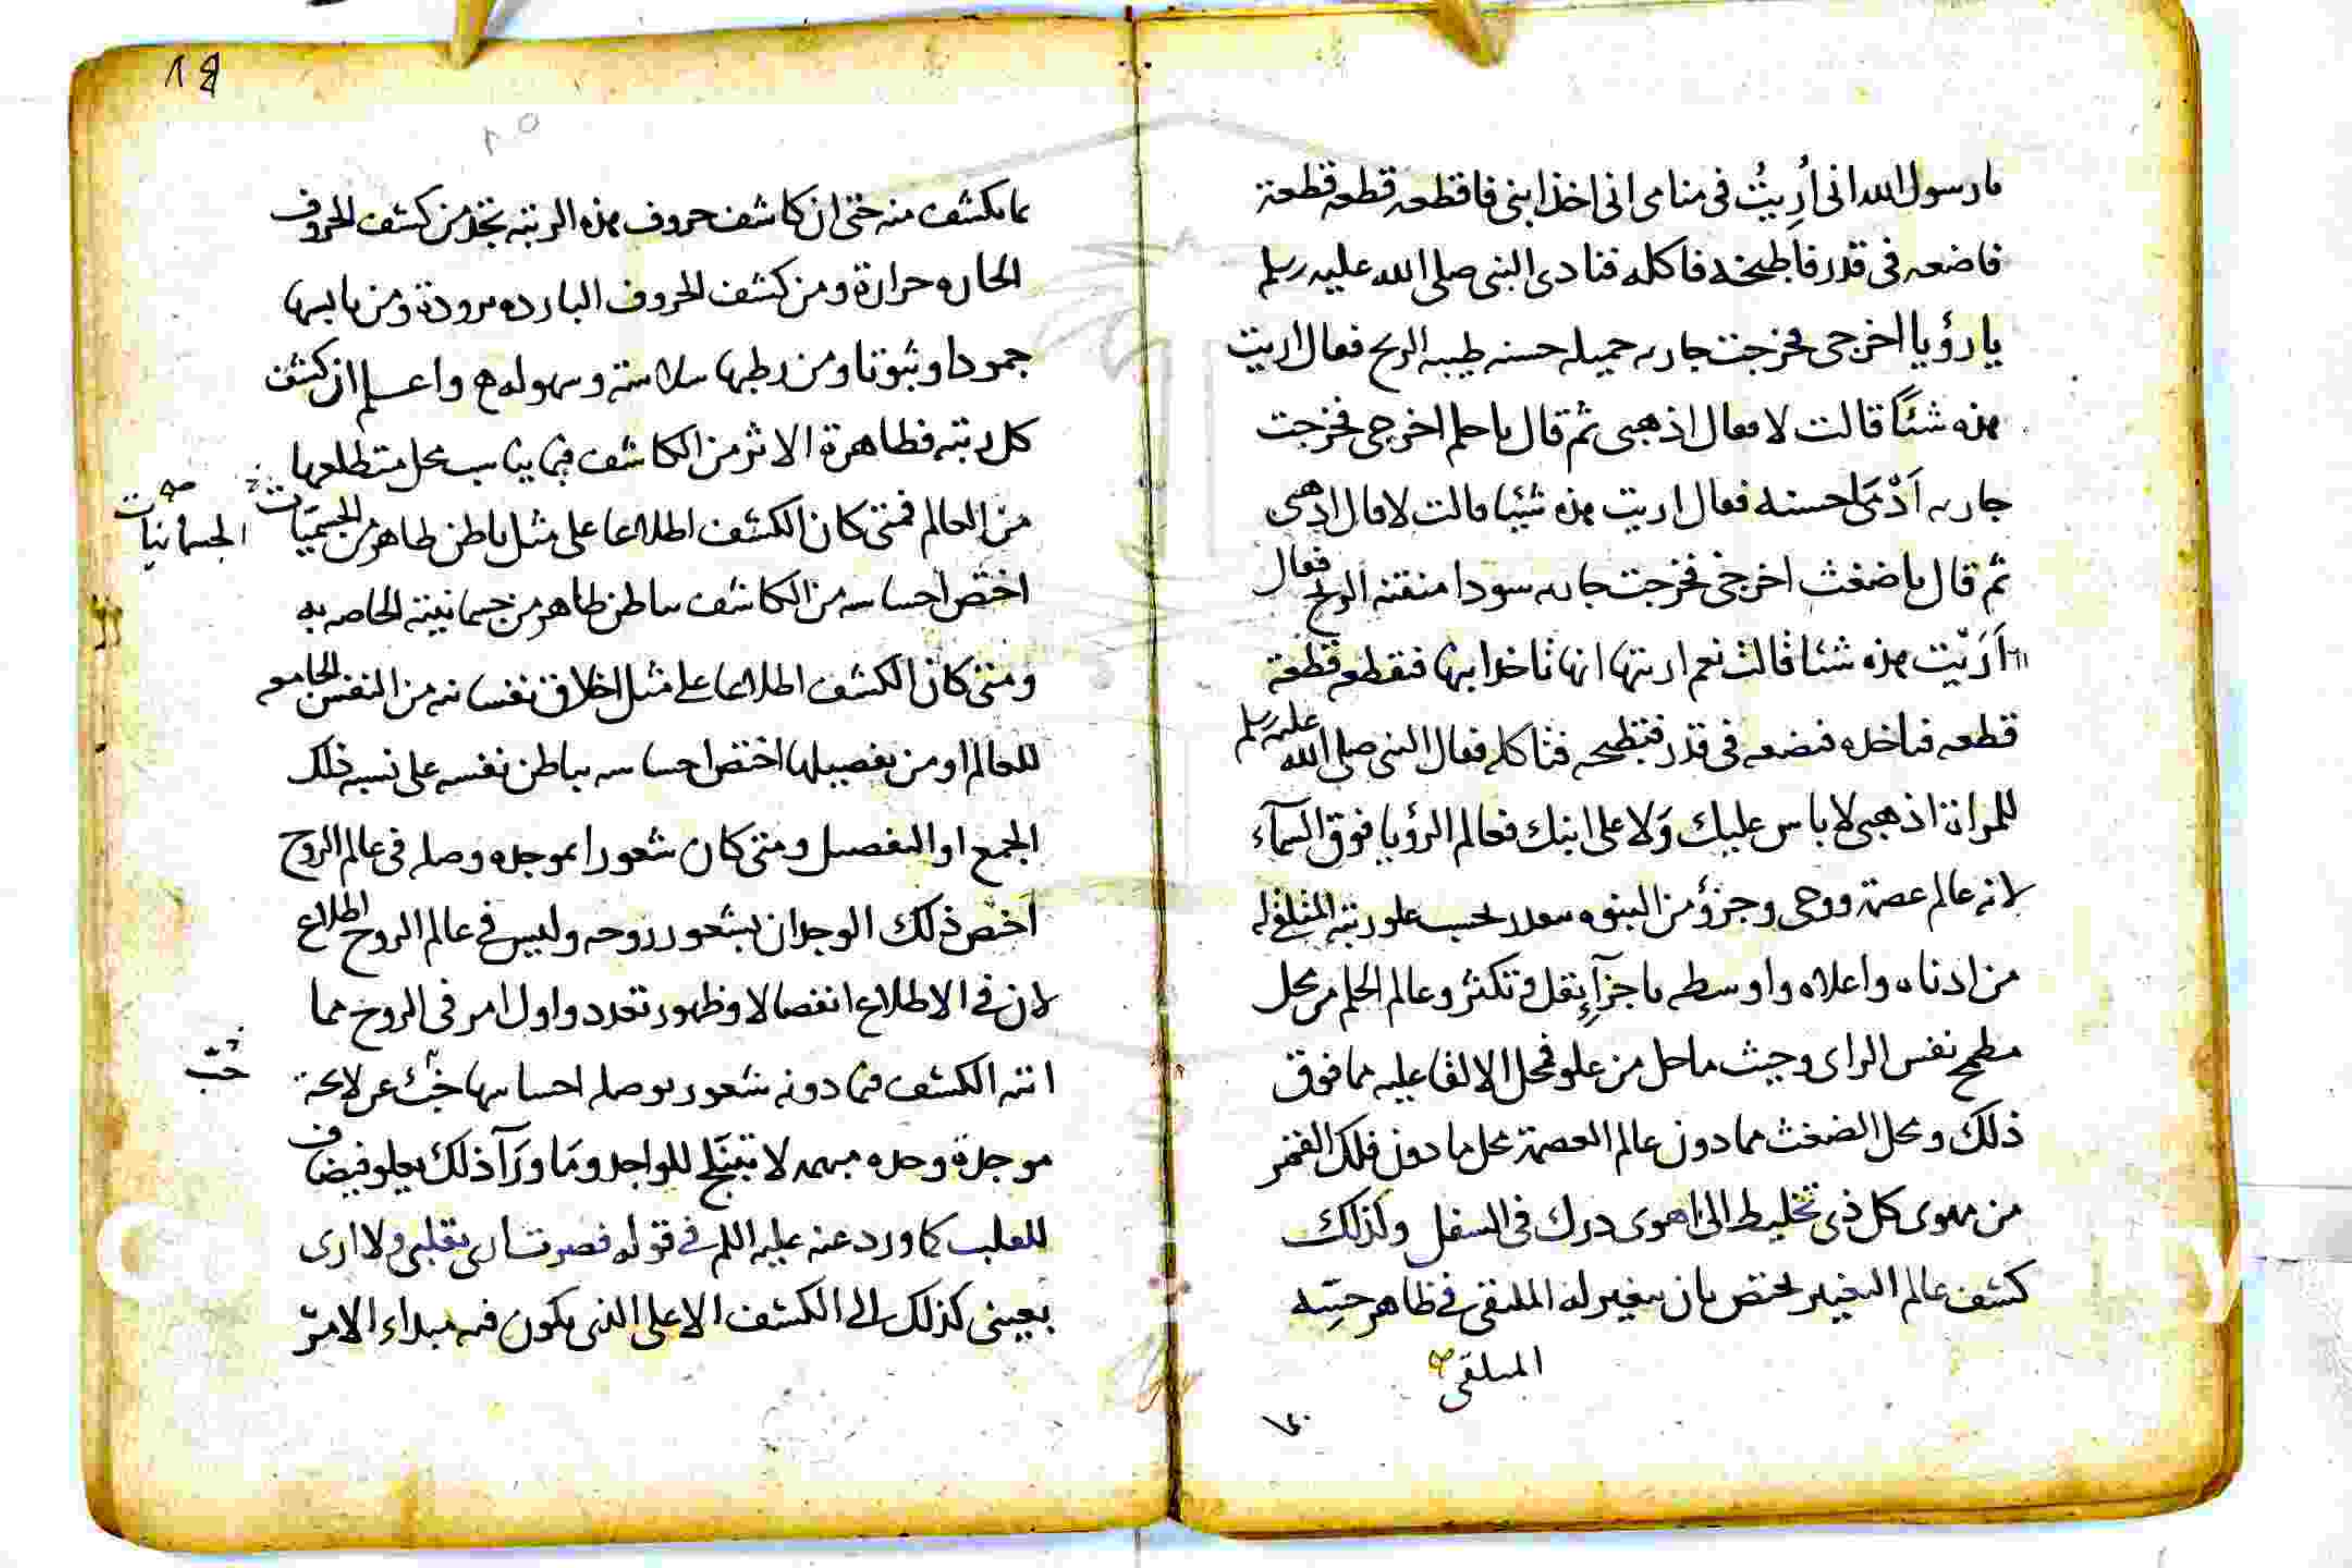 يا رسول الله انى أُرِيتُ فى منامى انى اخذ ابنى فاقطعه قطعه قطعة
فاضعه فى قدر فاطبخه فاكله فنادى النبى صلى الله عليه وسلم
يا رؤيا اخرجى فخرجت جاريه جميله حسنه طيبه الريح فعال اريت
هذه شئًا قالت لا فعال اذهبى ثم قال يا حلم اخرجى فخرجت
جاريه اَدْمَى حسنه فعال اريت هذه شيئا قالت لا قال اذهبى
ثم قال يا ضغث اخرجى فخرجت جاريه سودا منتنه الريح فعال
اَرَيْت هذه شئا قالت نعم اريتها انها تاخذ ابنها فتقطعه قطعة
قطعه فتاخذه فتضعه فى قدر فتطبخه فتاكله فعال النبى صلى الله عليه وسلم
للمراة اذهبى لا باس عليك وَلا على ابنك فعالم الرؤيا فوق السمآء
لانه عالم عصمة ووحى وجزؤ من النبوه بحسب علو رتبه
من ادناه واعلاه واوسطه باجزآءِ تقل وتكثر وعالم الحلم من محل
مطمح نفس الراى وحيث ماحل من علو فمحل الالقا عليه مما فوق
ذلك ومحل الضغث مما دون عالم العصمة محل ما دون فلك القمر
من مهوى كل ذى تخليط الى اهوى درك فى السفل وكذلك
كشف عالم التغير يختص بان يتغير له الملتقى فى ظاهر حسّه
المتلقى
٤٠
٨٤
٢٥
ما يكشف منه حتى ان كاشف حروف هذه الرتبه يجد من كشف الحروف
الحاره حرارة ومن كشف الحروف البارده برودة ومن يابسها
جمودا وثبوتا ومن رطبها سلاسة وسهوله ه واعلم ان كشف
كل رتبه فظاهرة الاثر من الكاشف فيما يناسب محل متطلعها
من العالم فمتى كان الكشف اطلاعا على مثل باطن ظاهر من الجسميَات
الجسمانيات صح
اختص احساسه من الكاشف بباطن ظاهر من جسمانيته الخاصه به
ومتى كان الكشف اطلاعا على مثل اخلاق نفسانيه من النفس الجامعه
للعالم او من تفصيلها اختص احساسه بباطن نفسه على نسبه ذلك
الجمع او التفصيل ومتى كان شعورا بموجده وصله فى عالم الروح
اختص ذلك الوجدان بشعور روحه وليس فى عالم الروح اطلاع
لان فى الاطلاع انفصالا وظهور تعدد واول امر فى الروح مما
انتهى الكشف فيما دونه شعور بوصله احساسها عن لايحة
موجدة وحده مبهمه لا للواجد ومَا ورَآ ذلك يعلو فيضاف
للعلب كما ورد عنه عليه السلم فى قوله فصرت ارى بقلبى ولا ارى
بعينى كذلك الى الكشف الاعلى الذى يكون فيه مبداء الامر